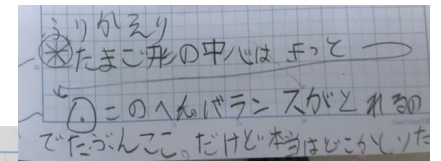 ふりかえり
※たまご形の中心は きっと
このへんバランスがとれるの
でたぶんここ。だけど本当はどこかしりた